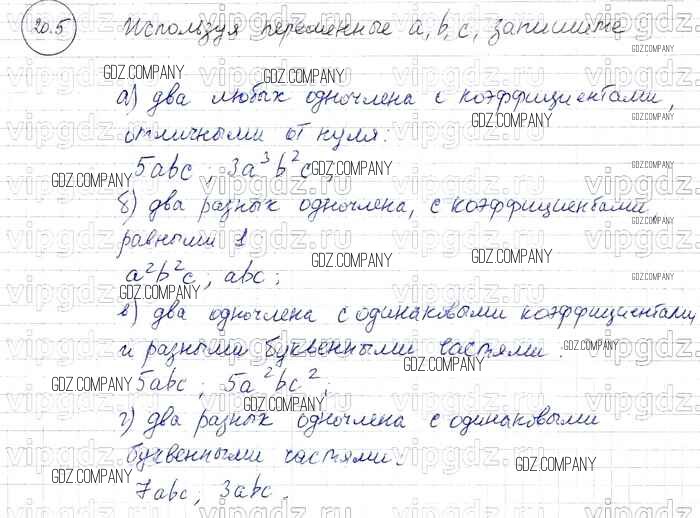 20.5 Используя переменные a, b, c, запишите
а) два любых одночлена с коэффициентами,
отличными от нуля:
5abc ; 3a³b²c ;
б) два разных одночлена, с коэффициентами,
равными 1
a²b²c ; abc ;
в) два одночлена с одинаковыми коэффициентами
и разными буквенными частями :
5abc ; 5a²bc² ;
г) два разных одночлена с одинаковыми
буквенными частями :
7abc , 3abc .